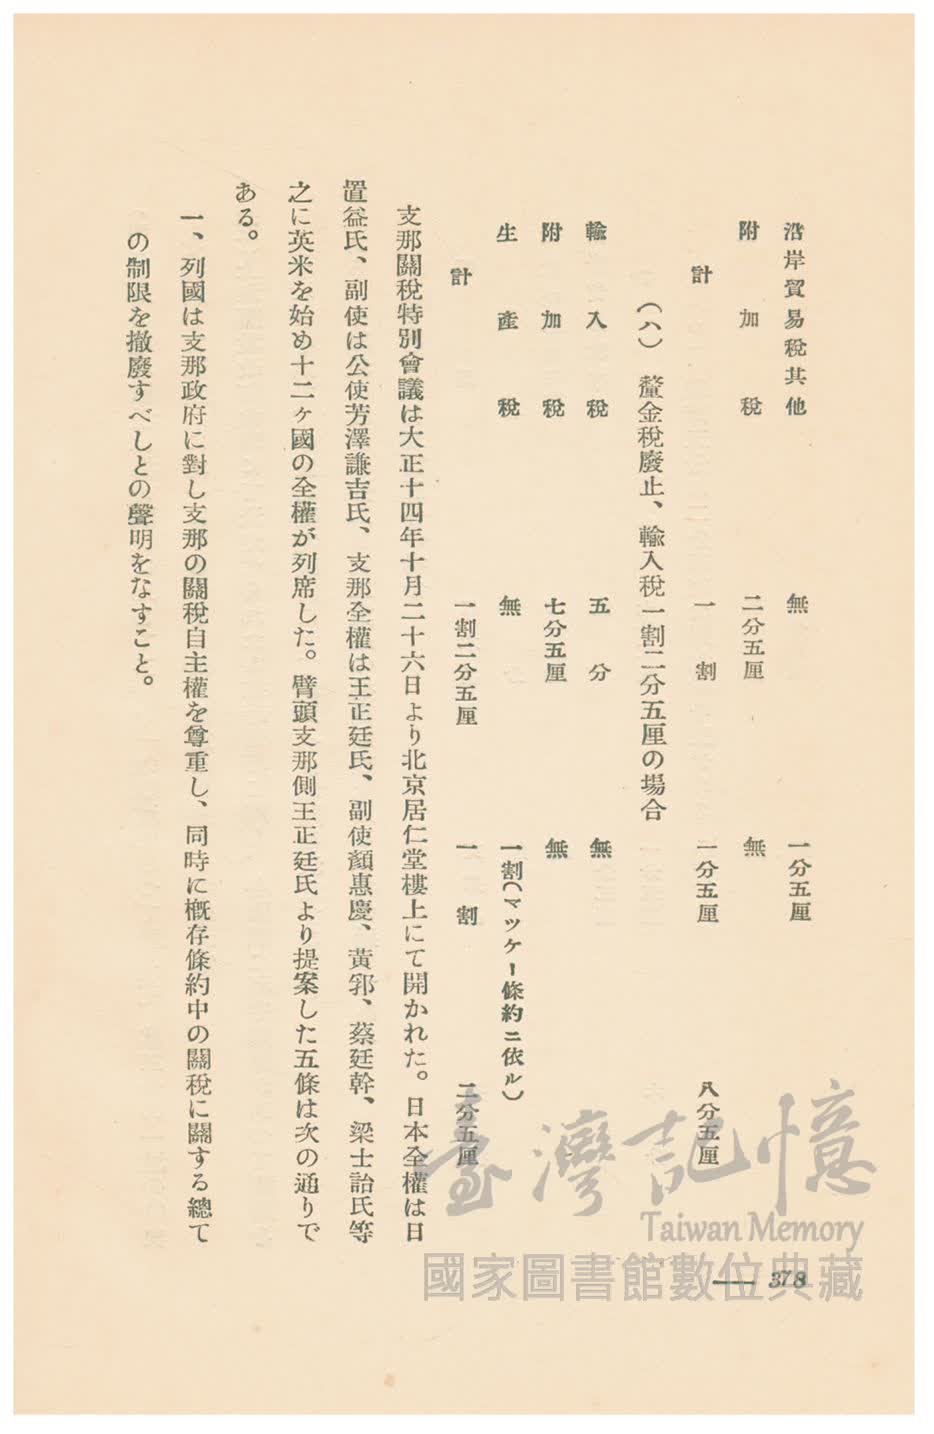 沿岸貿易稅其他　無　一分五厘
附加稅　二分五厘　無
計　一割　一分五厘　八分五厘
(八)　釐金稅廢止、輸入稅一割二分五厘の場合
輸入稅　五分　無
附加稅　七分五厘　無
生產稅　無　一割(マツケー條約ニ依ル)
計　一割二分五厘　一割　二分五厘
支那關稅特別會議は大正十四年十月二十六日より北京居仁堂樓上にて開かれた。日本全權は日
置益氏、副使は公使芳澤謙吉氏、支那全權は王正廷氏、副使顏惠慶、黃郛、蔡廷幹、梁士詒氏等
之に英米を始め十二ヶ國の全權が列席した。臂頭支那側王正廷氏より提案した五條は次の通りで
ある。
一、列國は支那政府に對し支那の關稅自主權を尊重し、同時に槪存條約中の關稅に關する總て
の制限を撤廢すべしとの聲明をなすこと。
378
臺灣記憶
Taiwan Memory
國家圖書館數位典藏